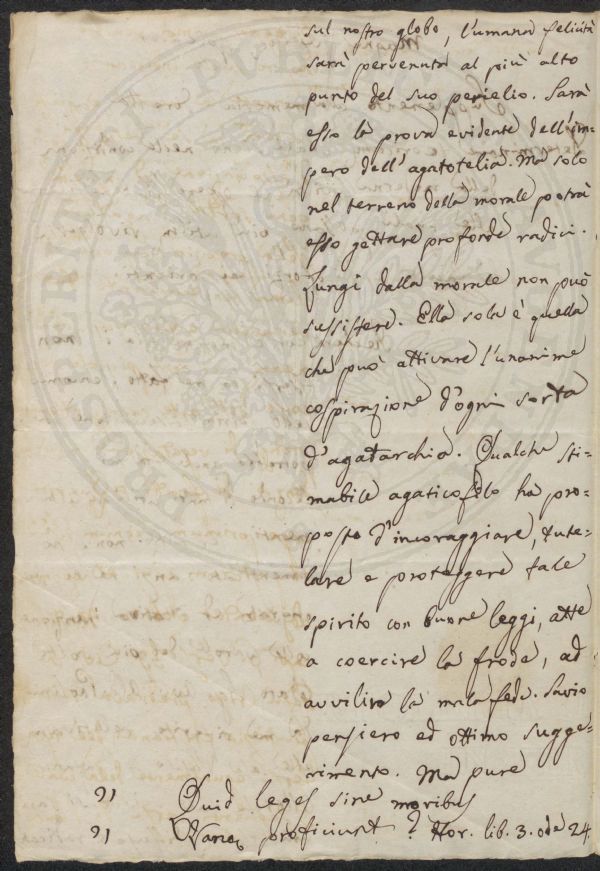 sul nostro globo, l'umana felicità
sarà pervenuta al più alto
punto del suo perielio. Sarà
esso la prova evidente dell'im-
pero dell'agatotelia. Ma solo
nel terreno della morale potrà
esso gettare profonde radici.
Lungi dalla morale non può
sussistere. Ella sola è quella
che può attivare l'unanime
cospirazione d'ogni sorta
d'agatarchia. Qualche sti-
mabile agaticofilo ha pro-
posto d'incoraggiare, tute-
lare e proteggere tale
spirito con buone leggi, atte
a coercire la frode, ad
avvilire la mala fede. Savio
pensiero ed ottimo sugge-
rimento. Ma pure
" Quid leges sine moribus
" Vanae proficiunt? Hor. lib. 3. ode 24.